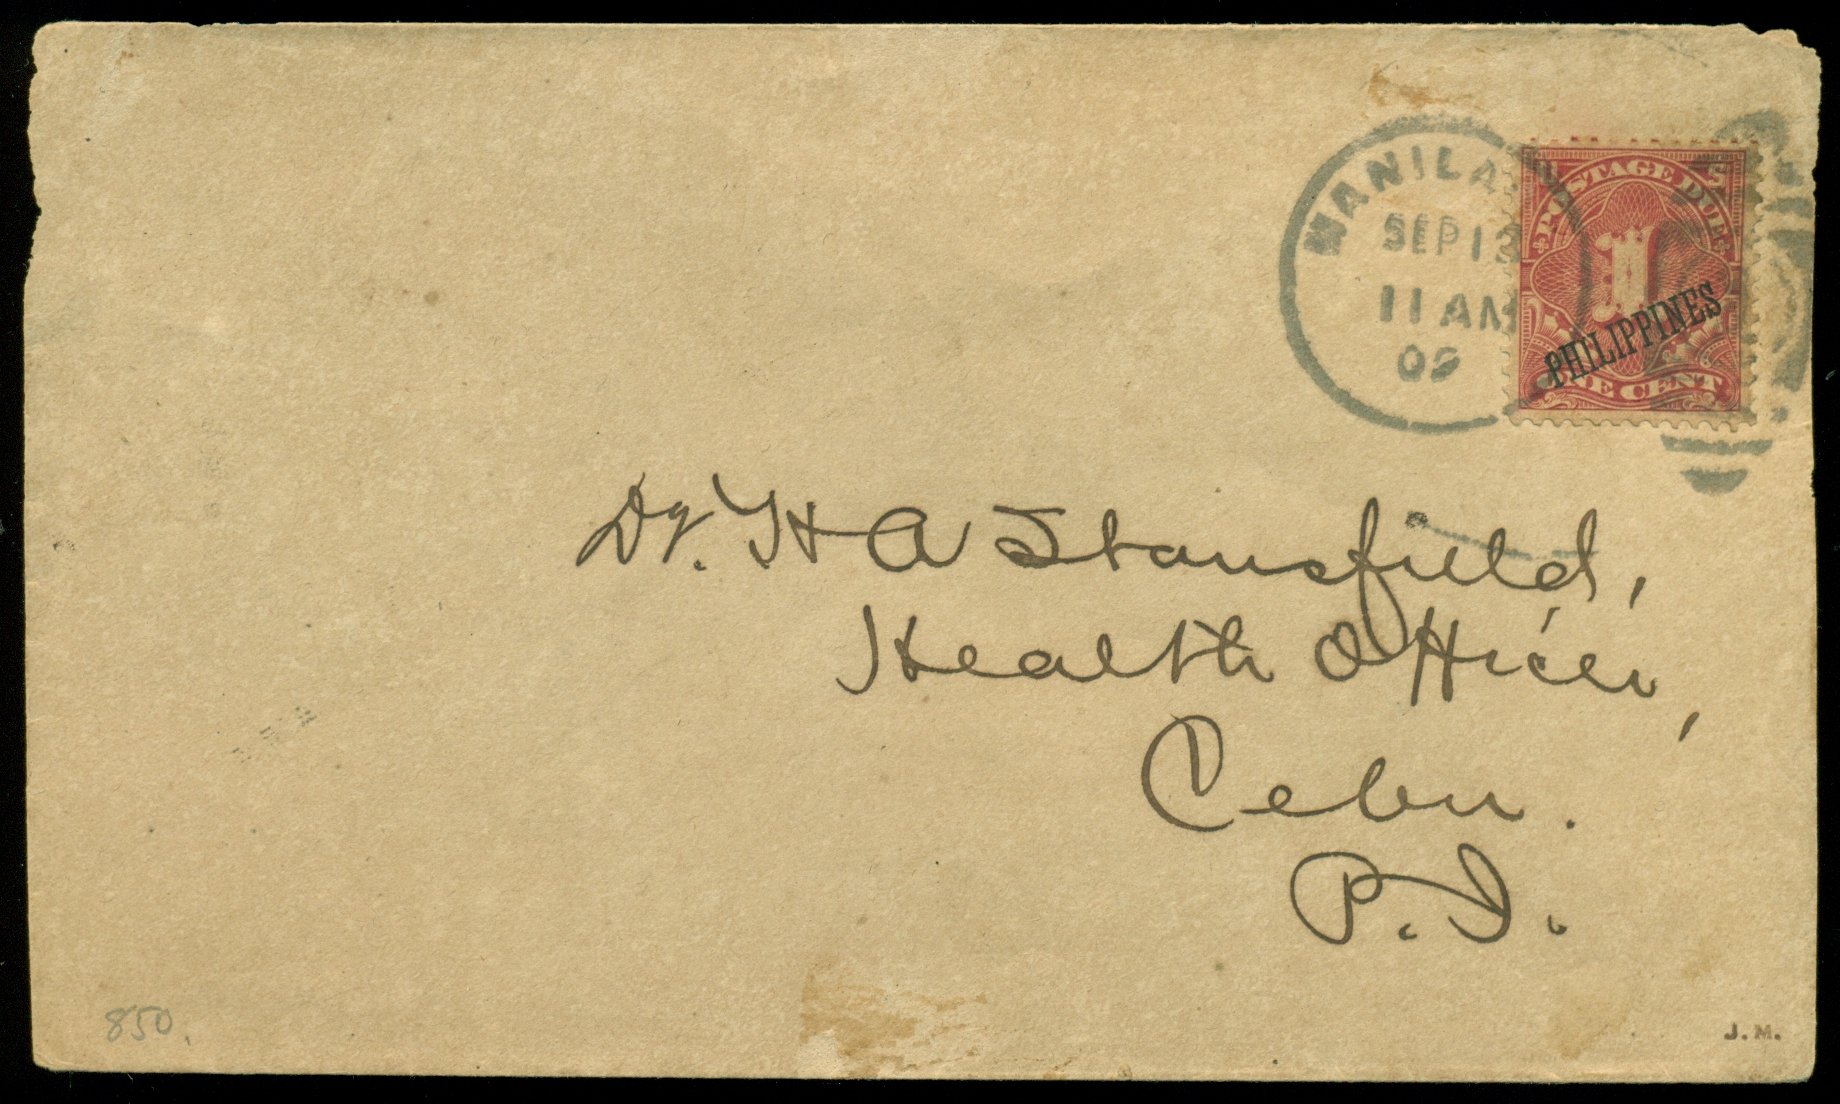 MANILA.
SEP 13
11 AM
09
POSTAGE DUE
1
PHILIPPINES
ONE CENT
Dr. H A Stansfield,
Health Officer,
Cebu.
P. I.
850.
J. M.